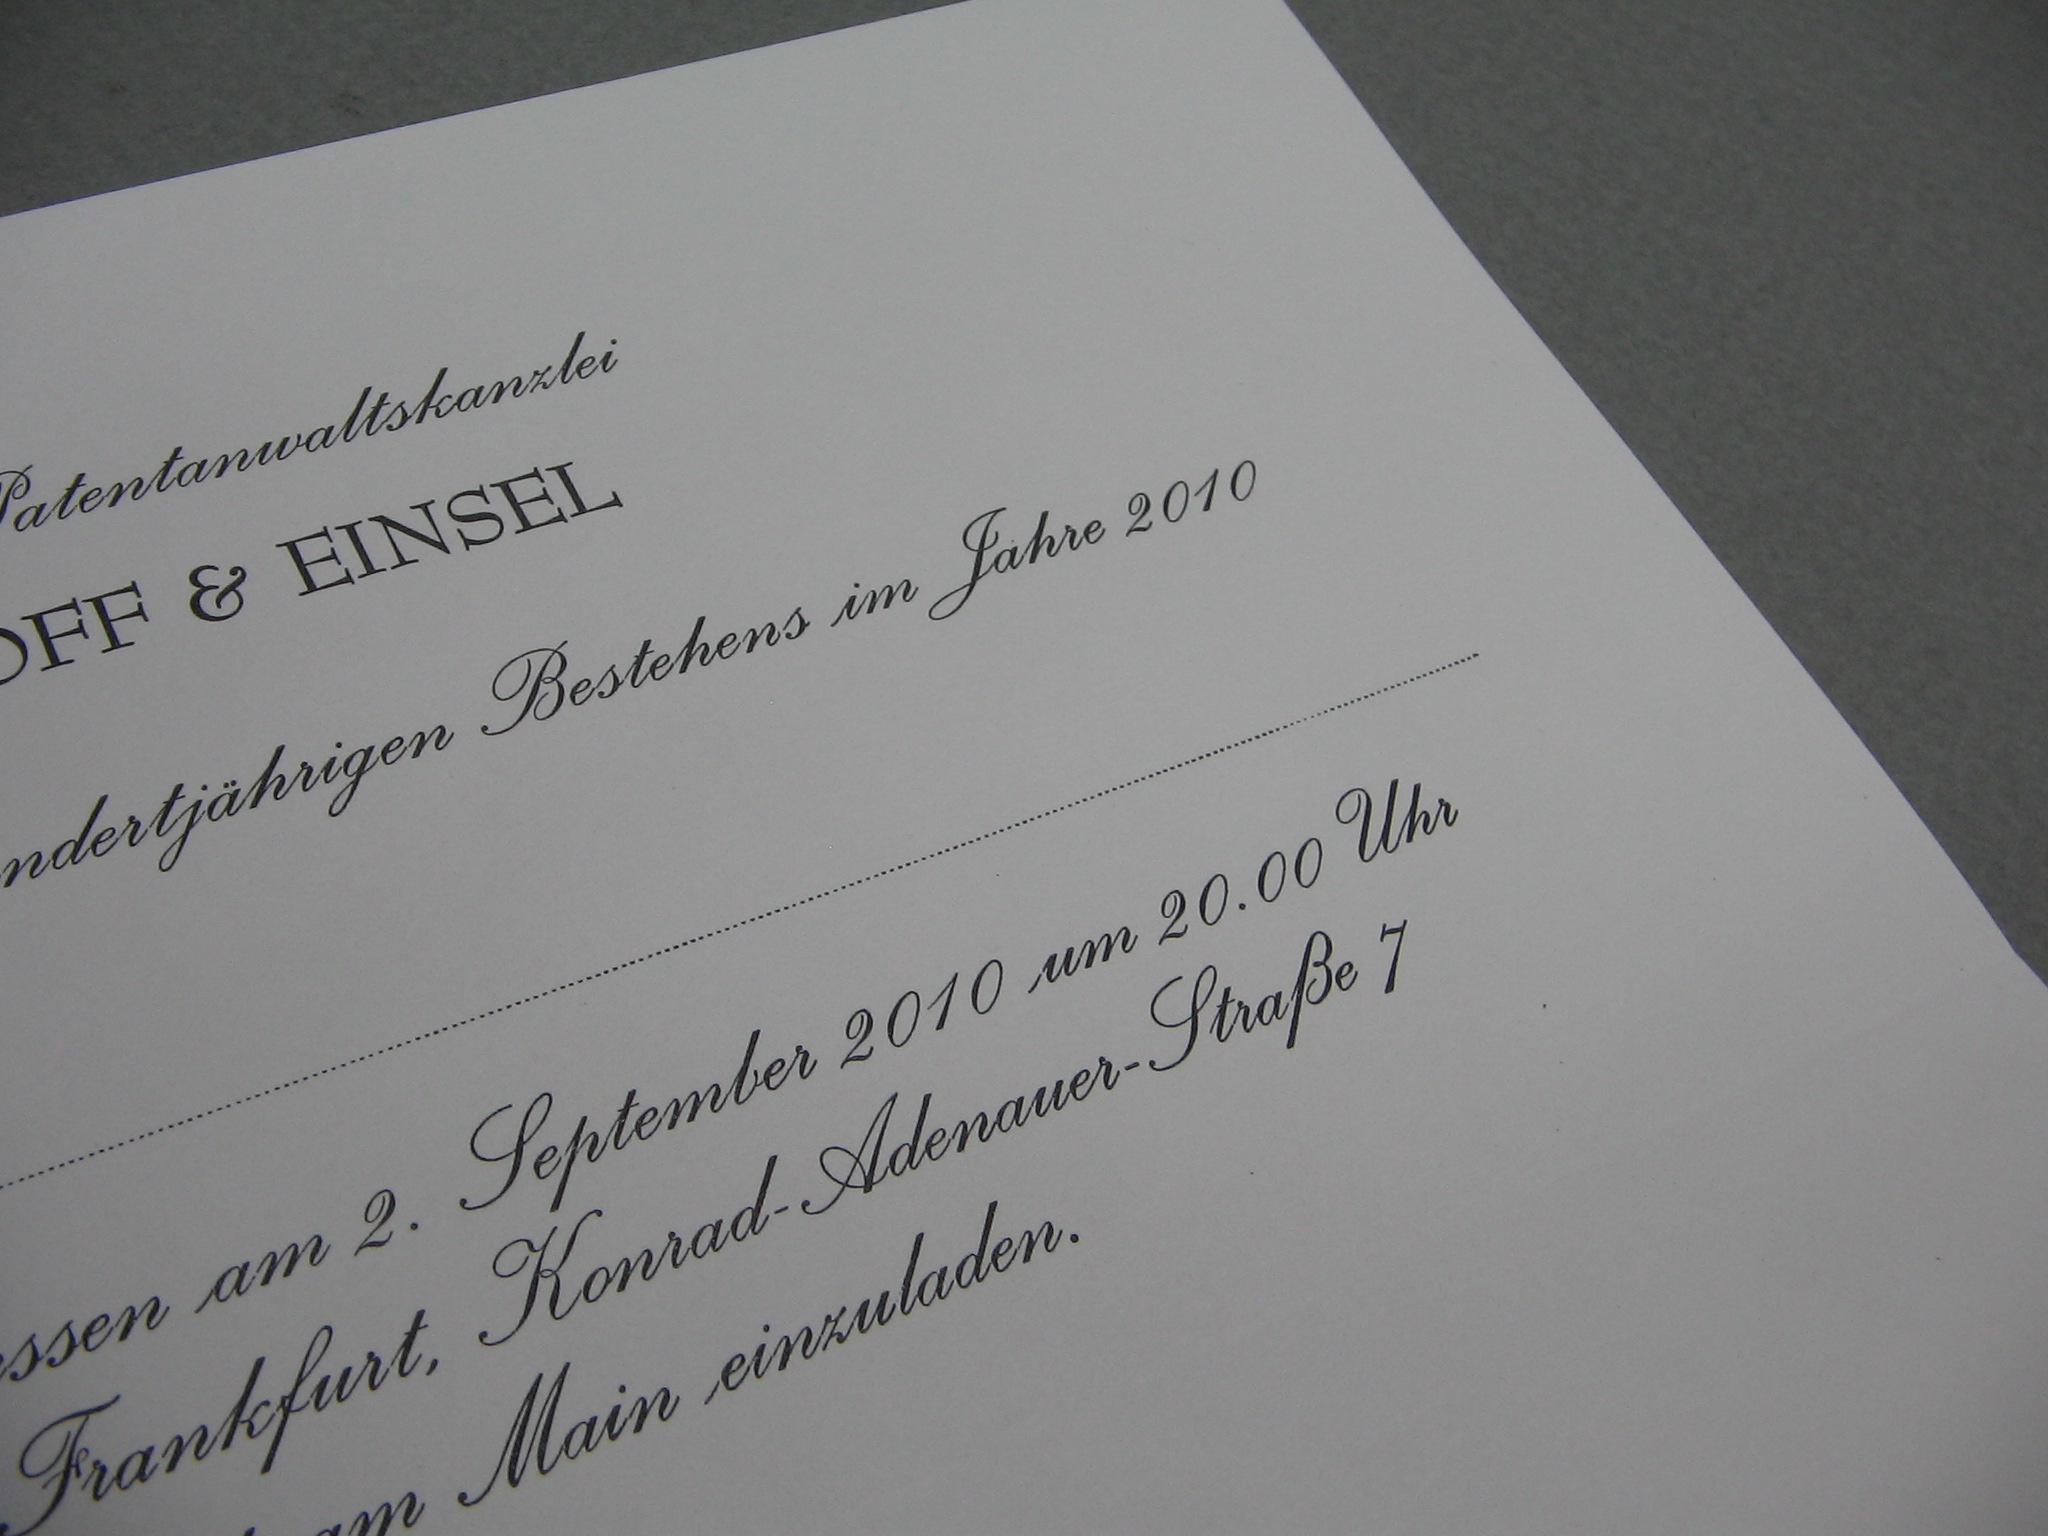 Patentanwaltskanzlei
OFF & EINSEL
ndertjährigen Bestehens im Jahre 2010
ssen am 2. September 2010 um 20.00 Uhr
Frankfurt, Konrad-Adenauer-Straße 7
am Main einzuladen.